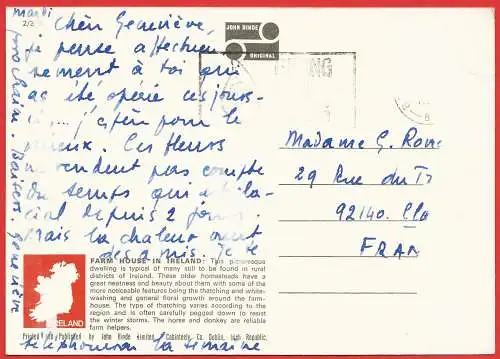 mardi
2/2
Chère Geneviève,
je pense affectueu
sement à toi qui
as été opérée ces jours-
ci ... j'espère pour le
mieux. Ces fleurs
ne rendent pas compte
du temps qui est gla-
cial depuis 2 jours.
Mais la chaleur vient
des amis. Je te
téléphonerai la semaine
prochaine. Baisers. Geneviève
JOHN HINDE
ORIGINAL
Madame G.
29 Rue du
92140.
FRAN
FARM HOUSE IN IRELAND: This picturesque
dwelling is typical of many still to be found in rural
districts of Ireland. These older homesteads have a
great neatness and beauty about them with some of the
more noticeable features being the thatching and white-
washing and general floral growth around the farm-
house. The type of thatching varies according to the
region and is often carefully pegged down to resist
the winter storms. The horse and donkey are reliable
farm helpers.
IRELAND
Printed and Published by John Hinde Limited, Cabinteely, Co. Dublin, Irish Republic.